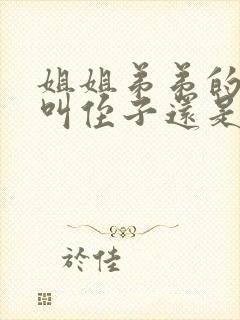 姐姐弟弟的
叫侄子還是
於佳